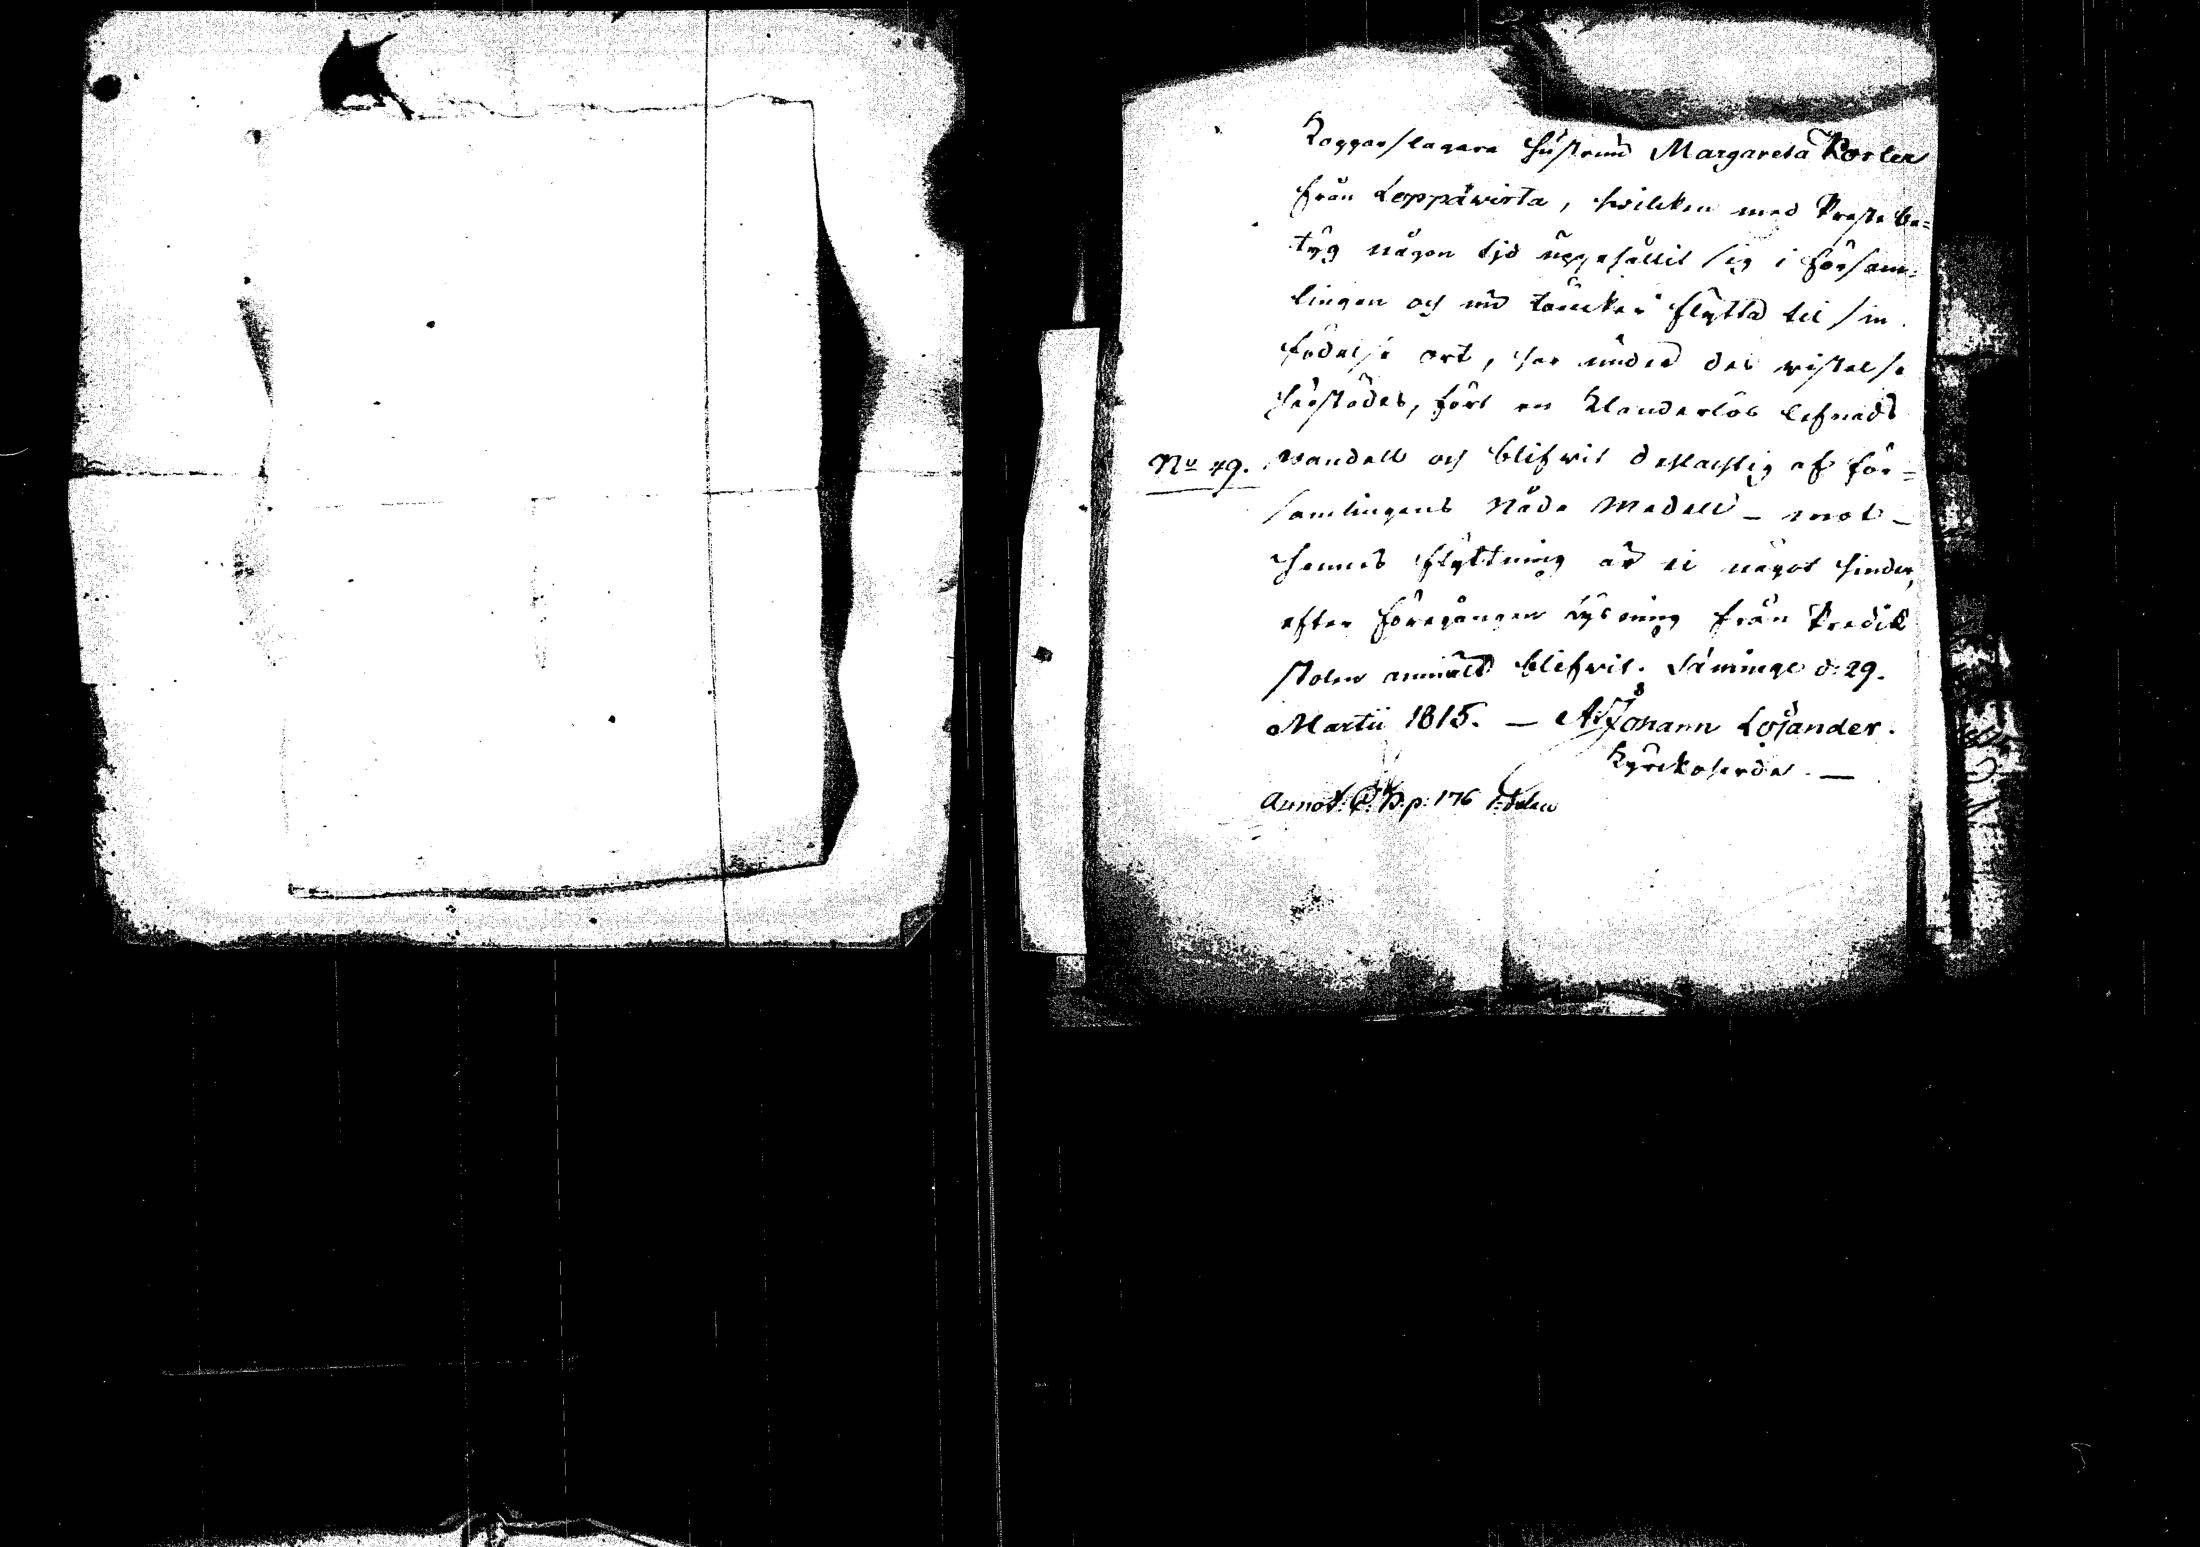 Koppar slagare hüstrun Margareta Porlen
från Leppäwirta, hwilcken med Prestebe=
tyg någon tjd üppehållit sig i försam=
lingen och nü täncker flytta til sin
födelse ort, har ünder des wistelse
härstädes, fört en klanderlös lefnads
No 49. wandell och blifwit delachtig af för=
samlingens Nåde Medell – mot –
hennes flyttning är ei något hinder,
efter föregången lysning från Predik
stolen anmält blifwit. Säminge d. 29.
Martii 1815. — Johann Lojander.
Kyrckoherde. —
Annot. p. 176